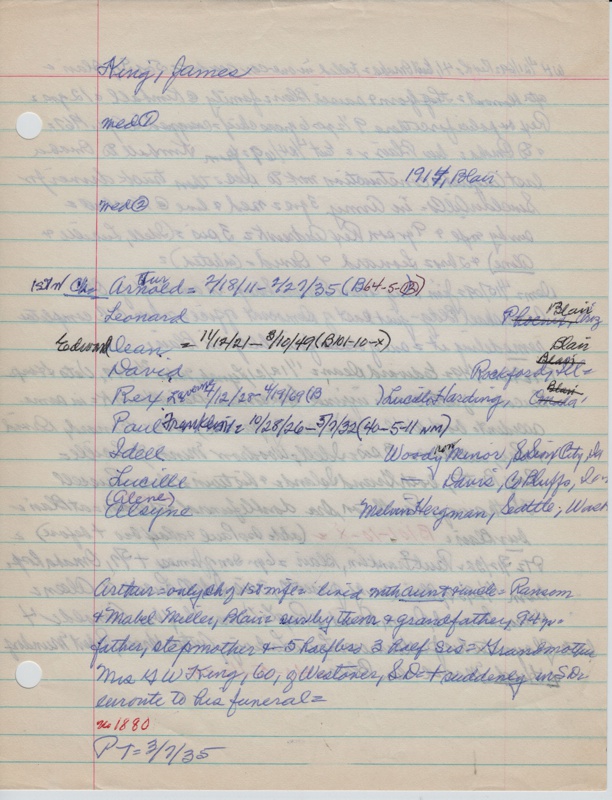 King, James
med ①
1914, Blair
med ②
1st W Chn Arthur Arnold = 2/18/11 - 2/27/35 (B64-5-B)
Leonard Phoenix, Ariz Blair
Edward Dean = 11/12/21 - 8/10/49 (B101-10-x) Blair
David Rockford, Ill =
Rex Laverne 4/12/28 - 4/19/69 (B ) Lucille Harding, Omaha, Blair
Paul Franklin = 10/28/26 - 5/7/32 (40-5-11 NM)
Idell Woodrow Menior, S Sioux City, Ia
Lucille — Davis, C Bluffs, Iowa
(Alene)
Alayne Melvin Hegman, Seattle, Wash
Arthur = only ch of 1st mge = lived with aunt & uncle = Ransom
& Mabel Miller, Blair = surv by them & grandfather, 94
father, stepmother & 5 half bros 3 half sis = Grandmother
Mrs G W King, 60, of Westover, S.D. + suddenly in S D =
enroute to his funeral =
No 1880
P T = 3/7/35